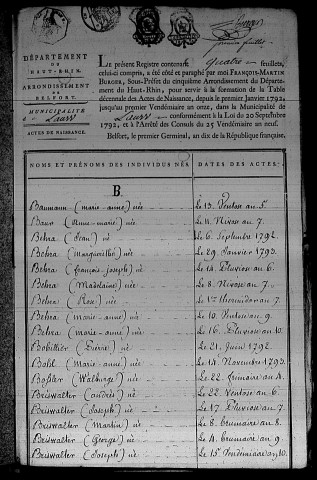 DÉPARTEMENT
DU HAUT-RHIN.
ARRONDISSEMENT
DE BELFORT.
MUNICIPALITÉ
ACTES DE NAISSANCE.
LE présent Registre contenant quatre feuillets,
celui-ci compris, a été coté et paraphé par moi FRANÇOIS-MARTIN
BURGER, Sous-Préfet du cinquième Arrondissement du Département
du Haut-Rhin, pour servir à la formation de la Table
décennale des Actes de Naissance, depuis le premier Janvier 1792,
jusqu'au premier Vendémiaire an onze, dans la Municipalité
de Lauw conformément à la Loi du 20 Septembre
1792, et à l'Arrêté des Consuls du 25 Vendémiaire an neuf.
Belfort, le premier Germinal, an dix de la République française.
NOMS ET PRÉNOMS DES INDIVIDUS NÉS. DATES DES ACTES.
B.
Baumann (marie-anne) née Le 13. Ventose an 5.
Baur (Anne-marie) née Le 11. Nivose an 7.
Behra (Jean) né Le 6. Septembre 1792.
Behra (Marguerithe) née Le 29. Janvier 1793.
Behra (françois-joseph) né Le 14. Pluviose an 6.
Behra (Madelaine) née Le 8. Nivose an 7.
Behra (Rose) née Le 1er thermidor an 7.
Behra (marie-anne) née Le 10. Ventose an 9.
Behra (marie-anne) née Le 16. Pluviose an 10.
Bobillier (Pierre) né Le 21. Juin 1792.
Bohl (Marie-anne) née Le 14. Novembre 1793.
Boßler (Walburge) née Le 22. frimaire an 4.
Briswalter (andrés) né Le 22. Ventose an 6.
Briswalter (Joseph) né Le 17. Pluviose an 7.
Briswalter (Martin) né Le 8. Brumaire an 8.
Briswalter (George) né Le 4. Brumaire an 9.
Briswalter (Joseph) né Le 15. Vendémiaire an 10.